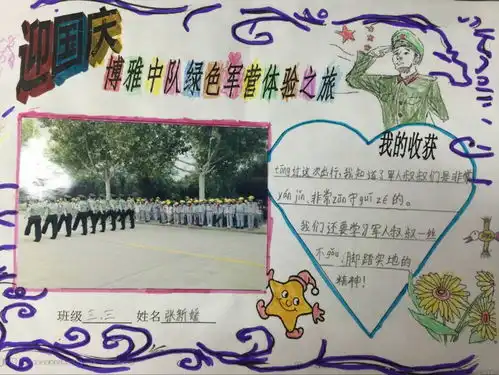 迎国庆
博雅中队绿色军营体验之旅
我的收获
tōng过这次出行，我知道了军人叔叔们是非常
yán jǐn，非常zūn守guī zé的。
我们还要学习军人叔叔一丝
不gǒu，脚踏实地的
精神！
班级 三.三 姓名 张新媛